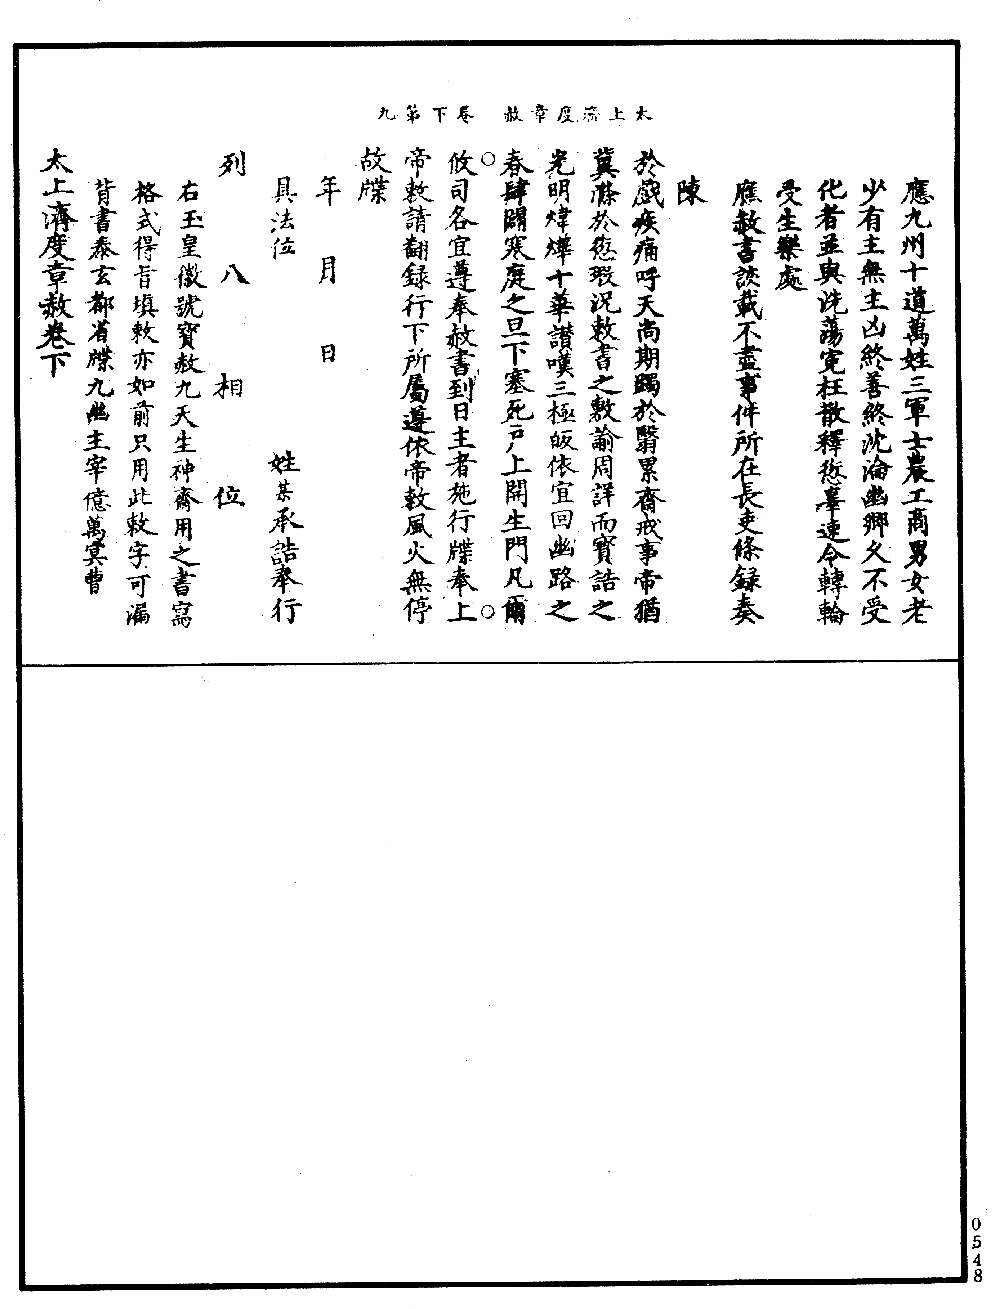 太上濟度章赦 卷下第九
應九州十道萬姓三軍士農工商男女老
少有主無主凶終善終沈淪幽鄉久不受
化者並與洗蕩寃枉散釋愆辜速令轉輪
受生樂處
應赦書該載不盡事件所在長吏條錄奏
陳
於戲疾痛呼天尚期蠲於翳累齋戒事帝猶
冀滌於愆瑕況敕書之敷諭周詳而寶誥之
光明煒燁十華讃嘆三極皈依宜回幽路之
春肆闢寒庭之旦下塞死戸上開生門凡爾
○○
攸司各宜遵奉赦書到日主者施行牒奉上
帝敕請翻錄行下所屬遵依帝敕風火無停
故牒
年 月 日
具法位 姓某承誥奉行
列 八 相 位
右玉皇徽號寶赦九天生神齋用之書寫
格式得旨填敕亦如前只用此敕字可漏
背書泰玄都省牒九幽主宰億萬冥曹
太上濟度章赦卷下
0548